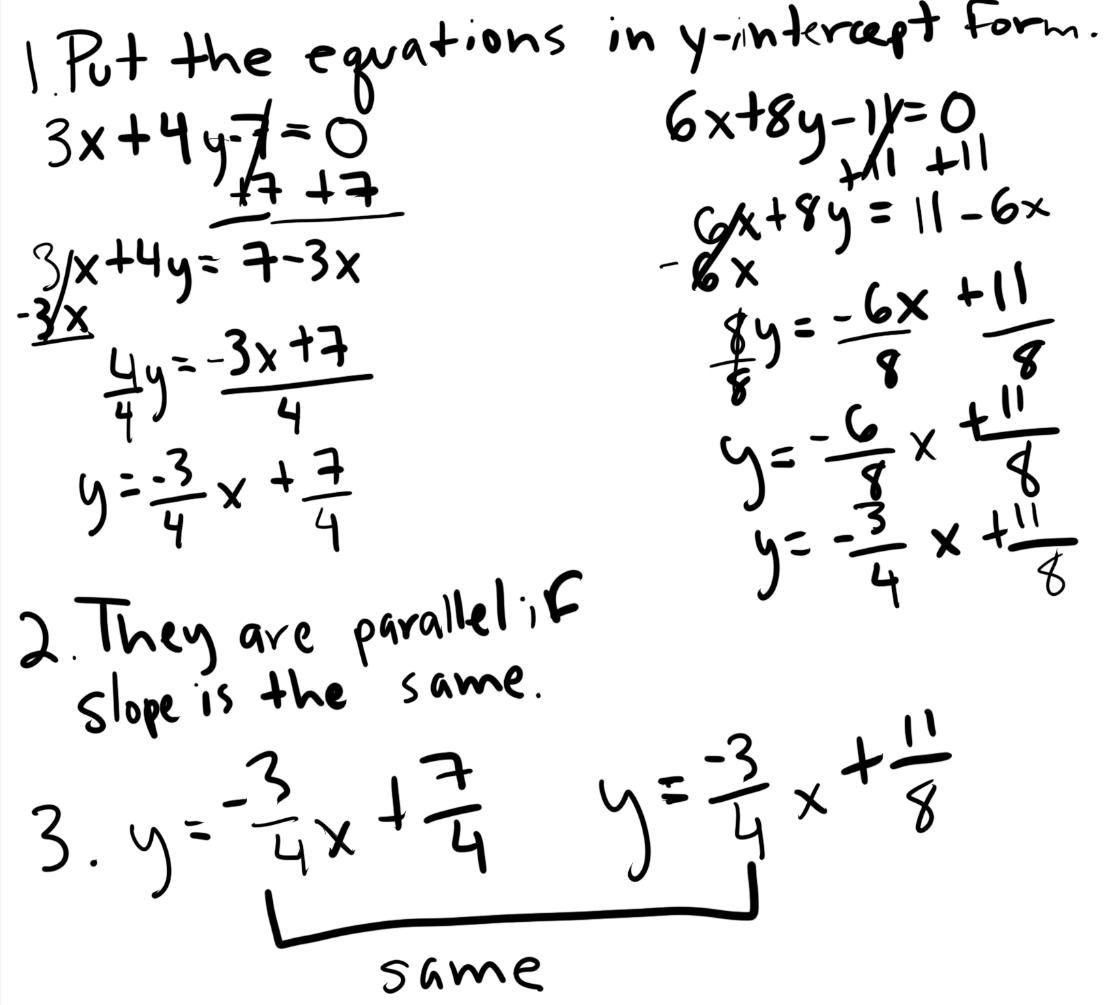 1. Put the equations in y-intercept form.
3x+4y-7=0
+7 +7
3x+4y=7-3x
-3x
4/4 y=-3x+7/4
y=-3/4 x +7/4
6x+8y-11=0
+11 +11
6x+8y=11-6x
-6x
8/8 y=-6x/8 +11/8
y=-6/8 x +11/8
y=-3/4 x +11/8
2. They are parallel if
slope is the same.
3. y=-3/4 x +7/4 y=-3/4 x +11/8
same